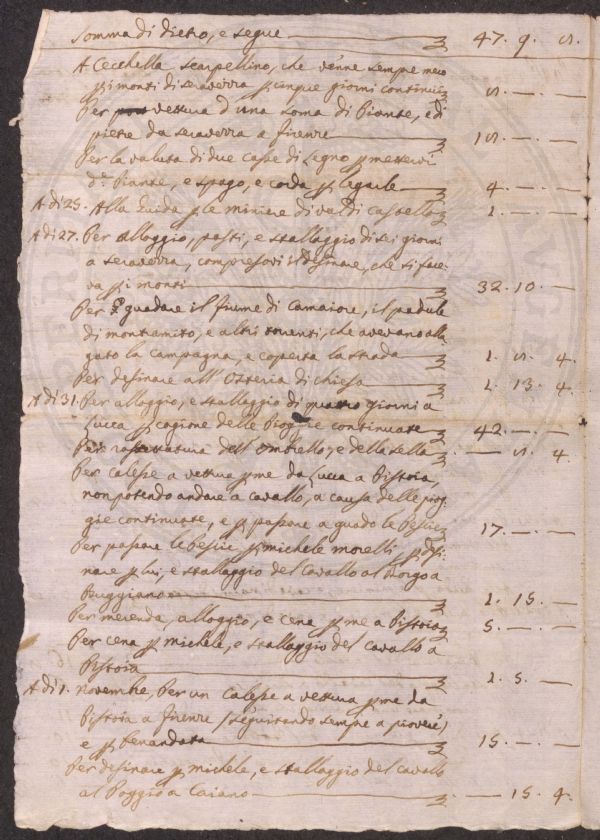 Somma di dietro, e segue 47. 9. 5.
A Cecchella scarpellino, che venne sempre meco
p i monti di seraverra p cinque giorni continui 5. — . —
Per vettura d'una soma di Piante, e di
pietre da seraverra a firenre 15. — . —
Per la valuta di due casse di legno p mettervi
d.e Piante, e spago, e corda p legarle 4. — . —
A di 25. Alla Guida p le miniere di val di castello 2. — . —
A di 27. Per alloggio, pasti, e stallaggio di sei giorni
a seraverra, compresovi il desinare, che si face-
va p i monti 32. 10. —
Per guadare il fiume di Camaiore, il padule
di montramito, e altri torrenti, che avevano alla-
gato la campagna, e coperta la strada 1. 5. 4.
Per desinare all'Osteria di chiesa 2. 13. 4.
A di 31. Per alloggio, e stallaggio di quattro giorni a
Lucca p cagione delle Piogge continuate 42. — . —
Per rassettatura dell'ombrello, e della sella — . 5. 4.
Per calesse a vettura p me da Lucca a Pistoia,
non potendo andare a cavallo, a causa delle piog-
gie continuate, e p passare a guado le Pescie 17. — . —
Per passare le Pescie p michele morelli, p desi-
nare p lui, e stallaggio del cavallo al Borgo a
Buggiano 2. 15. —
Per merenda, alloggio, e cena p me a Pistoia 5. — . —
Per cena p michele, e stallaggio del cavallo a
Pistoia 2. 5. —
A di 1. novembre, Per un calesse a vettura p me da
Pistoia a firenre (seguitando sempre a piovere)
e p benandata 15. — . —
Per desinare p michele, e stallaggio del cavallo
al Poggio a Caiano — 15. 4.